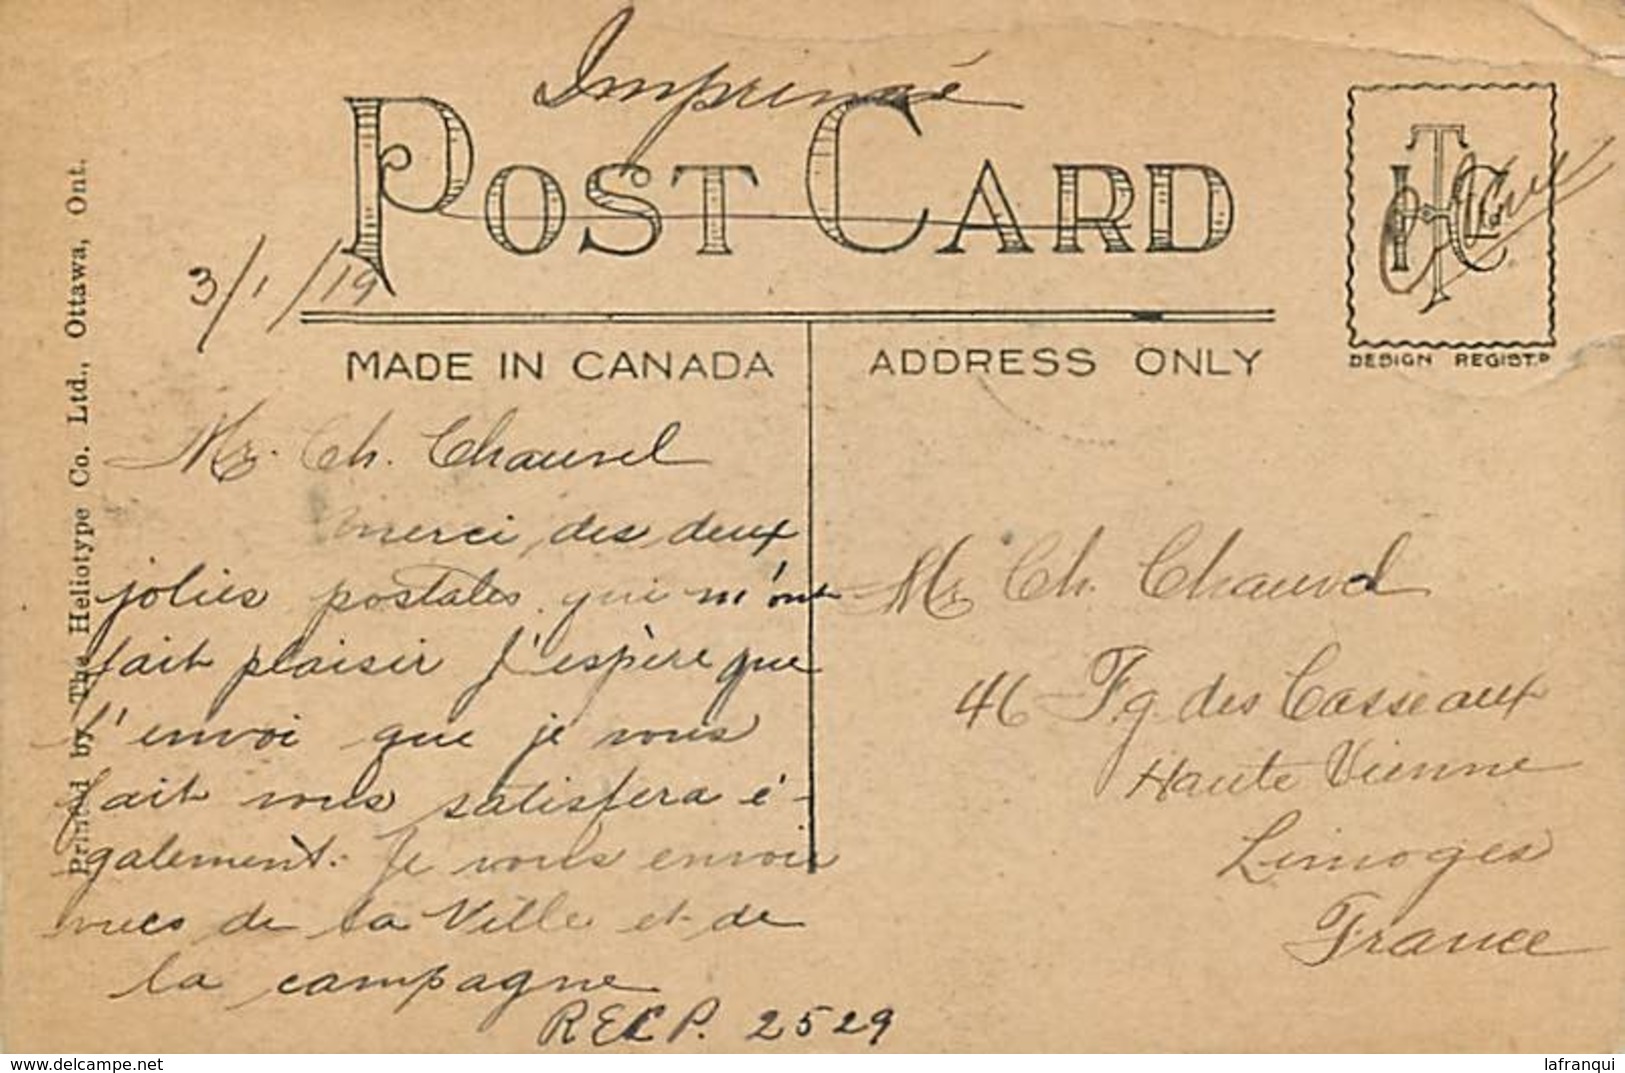 Imprimé
POST CARD
3/1/19
MADE IN CANADA
ADDRESS ONLY
DESIGN REGIST.D
Printed by The Heliotype Co. Ltd., Ottawa, Ont.
Mr. Ch. Chauvel
merci des deux
jolies postales qui m'ont
fait plaisir J'espère que
l'envoi que je vous
fait vous satisfera é-
galement. Je vous envoie
vues de la Ville et de
la campagne
RECP. 2529
Mr Ch. Chauvel
46 Fg. des Casseaux
Haute Vienne
Limoges
France
delcampe.net
lafranqui